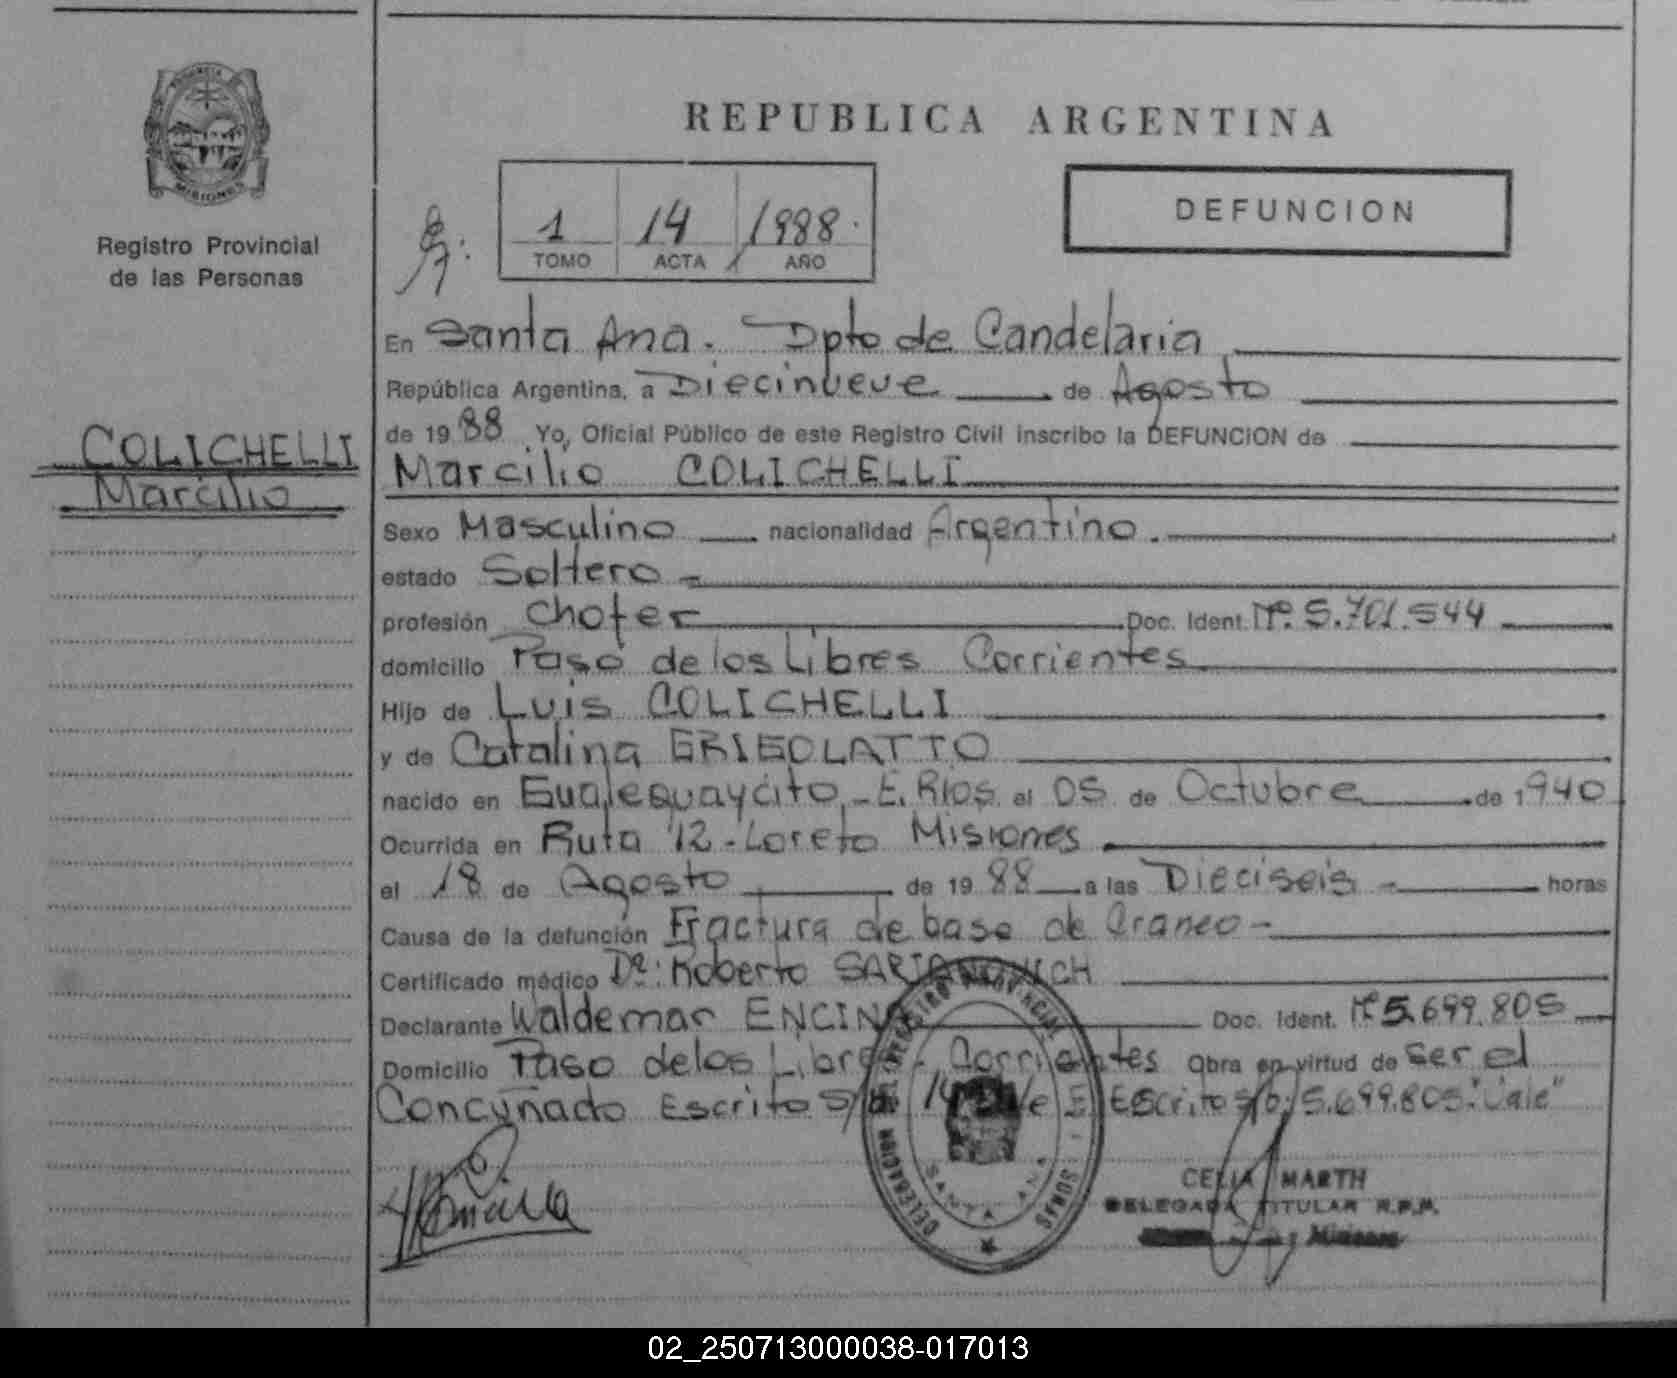 REPUBLICA ARGENTINA
PROVINCIA
MISIONES
Registro Provincial
de las Personas
1 14 1988.
TOMO ACTA AÑO
DEFUNCION
COLICHELLI
Marcilio
En Santa Ana. Dpto de Candelaria
República Argentina, a Diecinueve de Agosto
de 1988 Yo, Oficial Público de este Registro Civil inscribo la DEFUNCION de
Marcilio COLICHELLI
Sexo Masculino nacionalidad Argentino.
estado Soltero
profesión Chofer Doc. Ident. Nº 5.701.544
domicilio Paso de los Libres Corrientes
Hijo de Luis COLICHELLI
y de Catalina GRIGOLATTO
nacido en Gualeguaycito - E. Rios el 05 de Octubre de 1940
Ocurrida en Ruta 12 - Loreto Misiones
el 18 de Agosto de 1988 a las Dieciseis horas
Causa de la defunción Fractura de base de Craneo -
Certificado médico Dr: Roberto
Declarante Waldemar ENCINA Doc. Ident. Nº 5.699.805
Domicilio Paso de los Libres - Corrientes Obra en virtud de ser el
Concuñado Escrito s/b Escrito s/b/5.699.805 "Vale"
DELEGACION REGISTRO PROVINCIAL
SANTA ANA
CELIA MARTH
DELEGADA TITULAR R.P.P.
Misiones
02_250713000038-017013